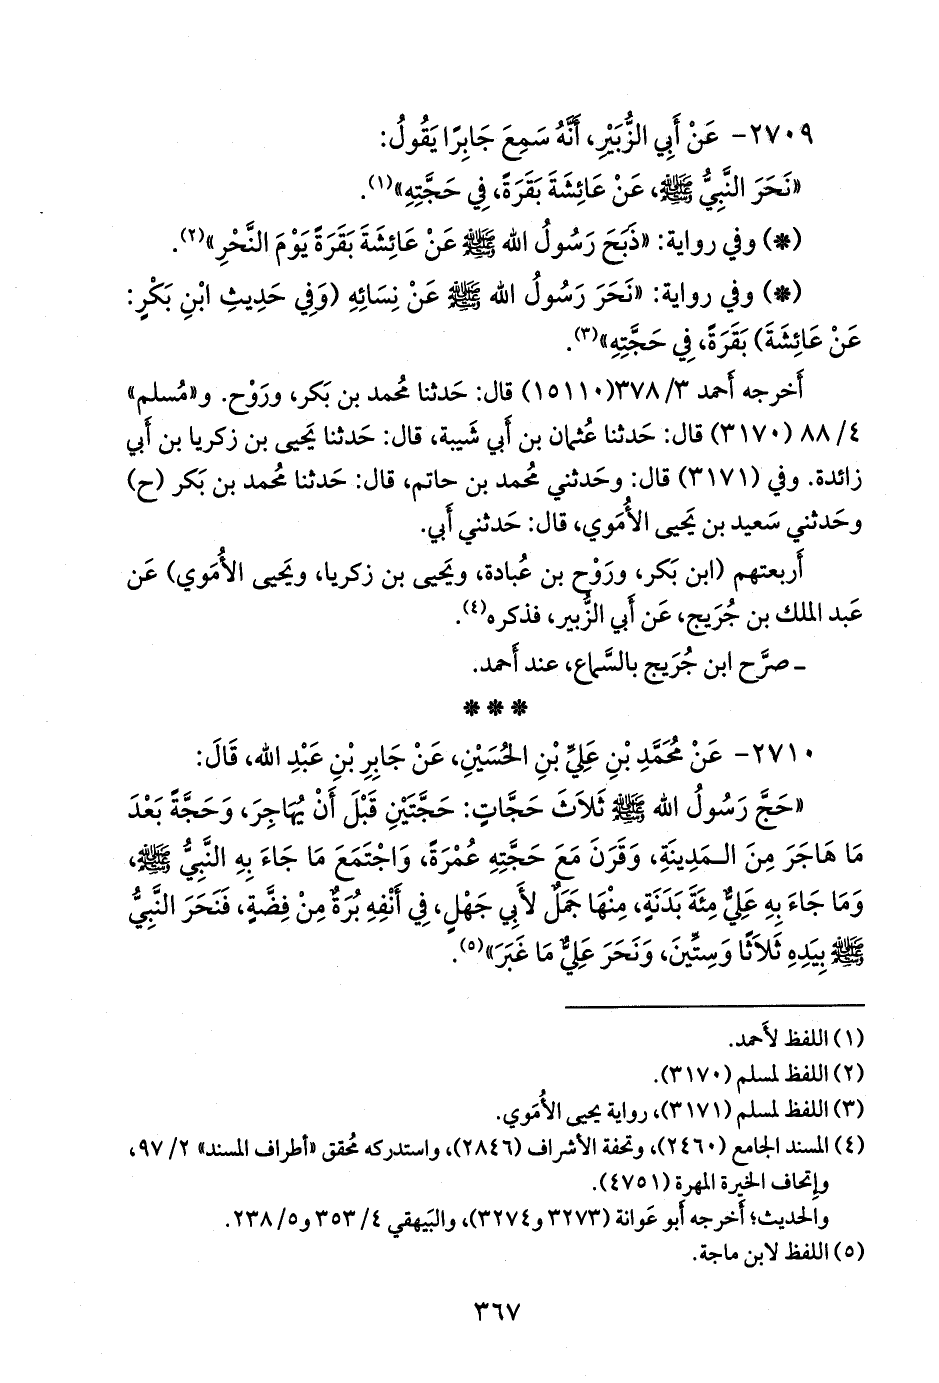 ٢٧٠٩- عَنْ أَبِي الزُّبَيْرِ، أَنَّهُ سَمِعَ جَابِرًا يَقُولُ:
«نَحَرَ النَّبِيُّ ﷺ، عَنْ عَائِشَةَ بَقَرَةً، فِي حَجَّتِهِ»(١).
(*) وفي رواية: «ذَبَحَ رَسُولُ الله ﷺ عَنْ عَائِشَةَ بَقَرَةً يَوْمَ النَّحْرِ»(٢).
(*) وفي رواية: «نَحَرَ رَسُولُ الله ﷺ عَنْ نِسَائِهِ (وَفِي حَدِيثِ ابْنِ بَكْرٍ:
عَنْ عَائِشَةَ) بَقَرَةً، فِي حَجَّتِهِ»(٣).
أَخرجه أَحمد ٣/ ٣٧٨(١٥١١٠) قال: حَدثنا مُحمد بن بَكر، ورَوْح. و«مُسلم»
٤/ ٨٨ (٣١٧٠) قال: حَدثنا عُثمان بن أَبي شَيبة، قال: حَدثنا يَحيى بن زكريا بن أَبي
زائدة. وفي (٣١٧١) قال: وحَدثني مُحمد بن حاتم، قال: حَدثنا مُحمد بن بَكر (ح)
وحَدثني سَعيد بن يَحيى الأُمَوي، قال: حَدثني أَبي.
أَربعتهم (ابن بَكر، ورَوْح بن عُبادة، ويَحيى بن زكريا، ويَحيى الأُمَوي) عَن
عَبد الملك بن جُرَيج، عَن أَبي الزُّبير، فذكره(٤).
ـ صرَّح ابن جُرَيج بالسَّماع، عند أَحمد.
* * *
٢٧١٠- عَنْ مُحَمَّدِ بْنِ عَلِيِّ بْنِ الحُسَيْنِ، عَنْ جَابِرِ بْنِ عَبْدِ الله، قَالَ:
«حَجَّ رَسُولُ الله ﷺ ثَلَاثَ حَجَّاتٍ: حَجَّتَيْنِ قَبْلَ أَنْ يُهَاجِرَ، وَحَجَّةً بَعْدَ
مَا هَاجَرَ مِنَ الـمَدِينَةِ، وَقَرَنَ مَعَ حَجَّتِهِ عُمْرَةً، وَاجْتَمَعَ مَا جَاءَ بِهِ النَّبِيُّ ﷺ،
وَمَا جَاءَ بِهِ عَلِيٌّ مِئَةَ بَدَنَةٍ، مِنْهَا جَمَلٌ لأَبِي جَهْلٍ، فِي أَنْفِهِ بُرَةٌ مِنْ فِضَّةٍ، فَنَحَرَ النَّبِيُّ
ﷺ بِيَدِهِ ثَلَاثًا وَسِتِّينَ، وَنَحَرَ عَلِيٌّ مَا غَبَرَ»(٥).
(١) اللفظ لأَحمد.
(٢) اللفظ لمسلم (٣١٧٠).
(٣) اللفظ لمسلم (٣١٧١)، رواية يحيى الأُمَوي.
(٤) المسند الجامع (٢٤٦٠)، وتحفة الأشراف (٢٨٤٦)، واستدركه مُحقق «أطراف المسند» ٢/ ٩٧،
وإتحاف الخيرة المهرة (٤٧٥١).
والحديث؛ أَخرجه أَبو عَوانة (٣٢٧٣ و٣٢٧٤)، والبَيهقي ٤/ ٣٥٣ و٥/ ٢٣٨.
(٥) اللفظ لابن ماجة.
٣٦٧